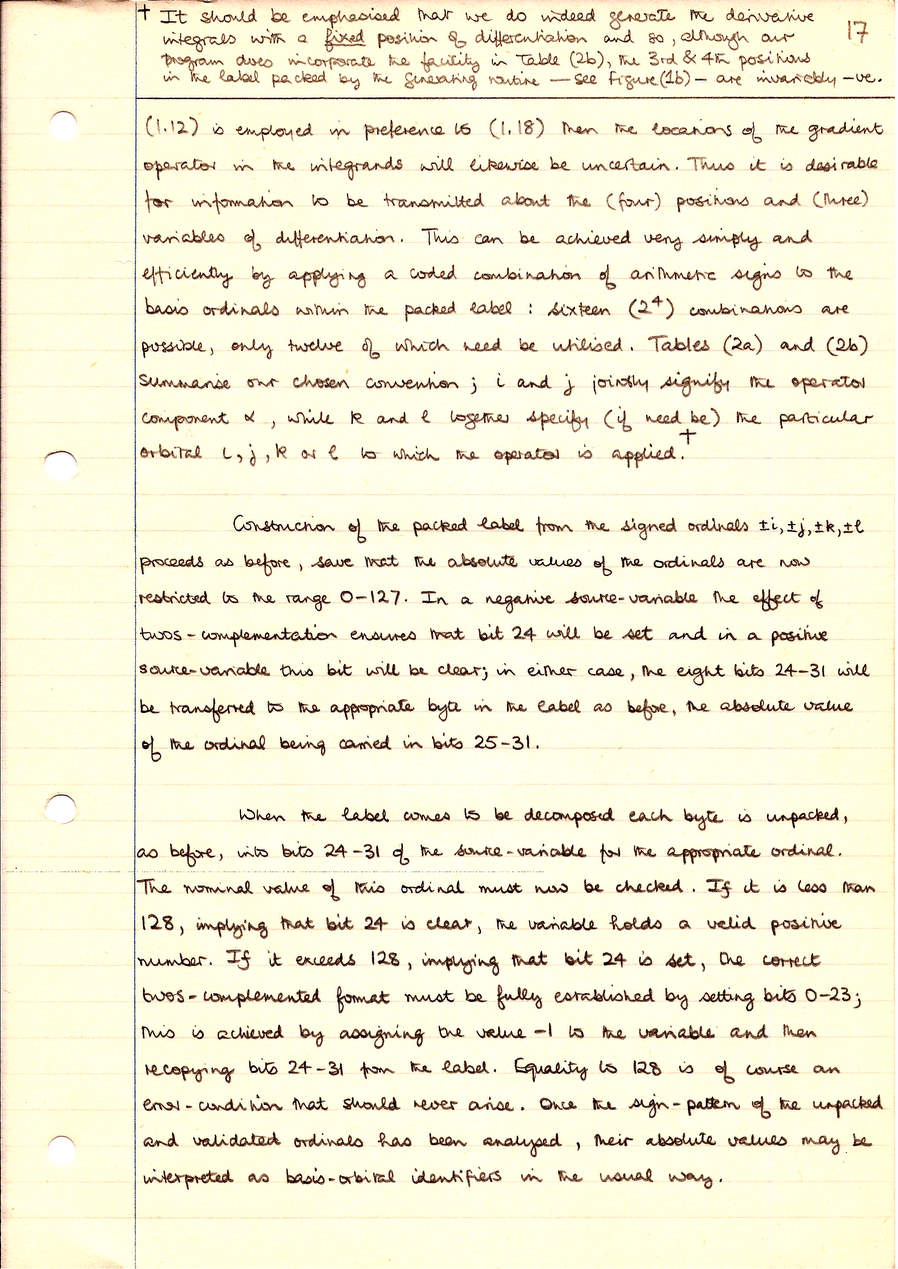 † It should be emphasised that we do indeed generate the derivative
integrals with a fixed position of differentiation and so, although our
program does incorporate the facility in Table (2b), the 3rd & 4th positions
in the label packed by the generating routine — see Figure (1b) — are invariably -ve.
17
(1.12) is employed in preference to (1.18) then the locations of the gradient
operator in the integrands will likewise be uncertain. Thus it is desirable
for information to be transmitted about the (four) positions and (three)
variables of differentiation. This can be achieved very simply and
efficiently by applying a coded combination of arithmetic signs to the
basis ordinals within the packed label : sixteen (2⁴) combinations are
possible, only twelve of which need be utilised. Tables (2a) and (2b)
summarise our chosen convention ; i and j jointly signify the operator
component α, while k and l together specify (if need be) the particular
orbital i, j, k or l to which the operator is applied.†
Construction of the packed label from the signed ordinals ±i, ±j, ±k, ±l
proceeds as before, save that the absolute values of the ordinals are now
restricted to the range 0-127. In a negative source-variable the effect of
twos-complementation ensures that bit 24 will be set and in a positive
source-variable this bit will be clear; in either case, the eight bits 24-31 will
be transferred to the appropriate byte in the label as before, the absolute value
of the ordinal being carried in bits 25-31.
When the label comes to be decomposed each byte is unpacked,
as before, into bits 24-31 of the source-variable for the appropriate ordinal.
The nominal value of this ordinal must now be checked. If it is less than
128, implying that bit 24 is clear, the variable holds a valid positive
number. If it exceeds 128, implying that bit 24 is set, the correct
twos-complemented format must be fully established by setting bits 0-23;
this is achieved by assigning the value -1 to the variable and then
recopying bits 24-31 from the label. Equality to 128 is of course an
error-condition that should never arise. Once the sign-pattern of the unpacked
and validated ordinals has been analysed, their absolute values may be
interpreted as basis-orbital identifiers in the usual way.